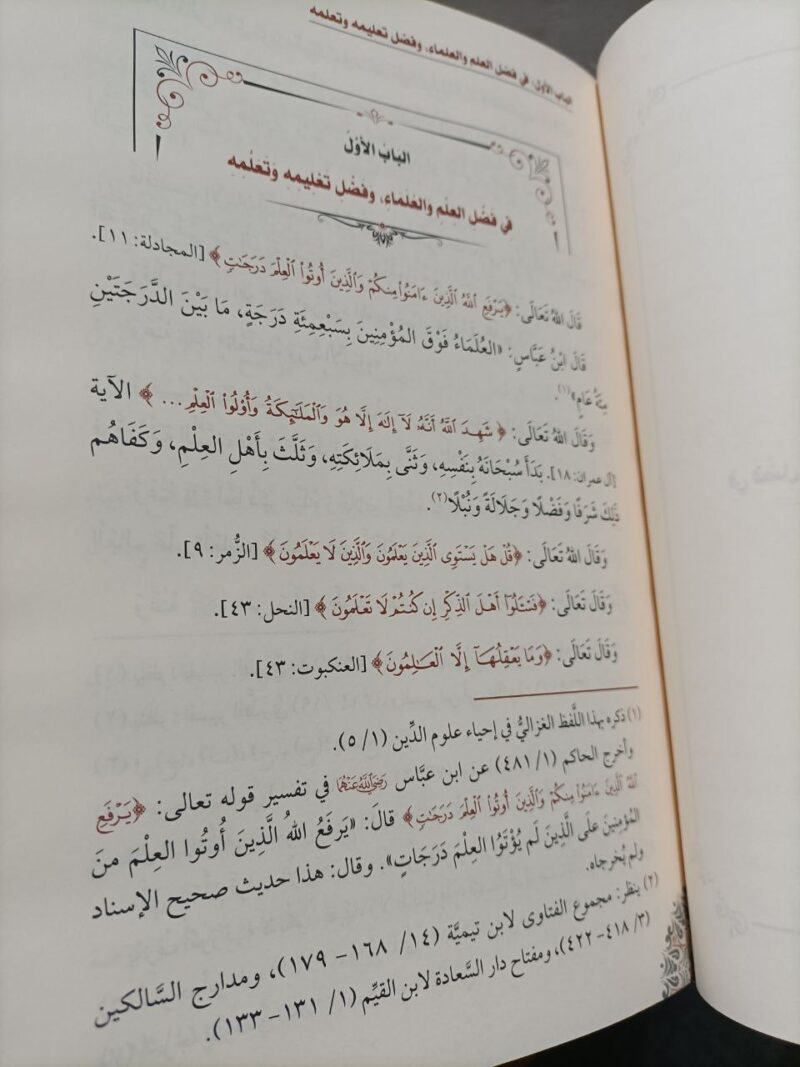 الباب الأول: في فضل العلم والعلماء، وفضل تعليمه وتعلمه
البابُ الأوّلُ
في فَضْلِ العِلْمِ والعُلَمَاءِ، وفَضْلِ تَعْلِيمِهِ وتَعَلُّمِهِ
قَالَ اللهُ تَعَالَى: ﴿يَرْفَعِ ٱللَّهُ ٱلَّذِينَ ءَامَنُوا۟ مِنكُمْ وَٱلَّذِينَ أُوتُوا۟ ٱلْعِلْمَ دَرَجَٰتٍ﴾ [المجادلة: ١١].
قَالَ ابْنُ عَبَّاسٍ: «العُلَمَاءُ فَوْقَ المُؤْمِنِينَ بِسَبْعِمِئَةِ دَرَجَةٍ، مَا بَيْنَ الدَّرَجَتَيْنِ
مِئَةُ عَامٍ»(١).
وَقَالَ اللهُ تَعَالَى: ﴿شَهِدَ ٱللَّهُ أَنَّهُۥ لَآ إِلَٰهَ إِلَّا هُوَ وَٱلْمَلَٰٓئِكَةُ وَأُو۟لُوا۟ ٱلْعِلْمِ...﴾ الآية
[آل عمران: ١٨]. بَدَأَ سُبْحَانَهُ بِنَفْسِهِ، وَثَنَّى بِمَلَائِكَتِهِ، وَثَلَّثَ بِأَهْلِ العِلْمِ، وَكَفَاهُم
ذَلِكَ شَرَفًا وَفَضْلًا وَجَلَالَةً وَنُبْلًا(٢).
وَقَالَ اللهُ تَعَالَى: ﴿قُلْ هَلْ يَسْتَوِى ٱلَّذِينَ يَعْلَمُونَ وَٱلَّذِينَ لَا يَعْلَمُونَ﴾ [الزُّمر: ٩].
وَقَالَ تَعَالَى: ﴿فَسْـَٔلُوٓا۟ أَهْلَ ٱلذِّكْرِ إِن كُنتُمْ لَا تَعْلَمُونَ﴾ [النحل: ٤٣].
وَقَالَ تَعَالَى: ﴿وَمَا يَعْقِلُهَآ إِلَّا ٱلْعَٰلِمُونَ﴾ [العنكبوت: ٤٣].
(١) ذكره بهذا اللَّفظ الغزاليُّ في إحياء علوم الدِّين (١/ ٥).
وأخرج الحاكم (١/ ٤٨١) عن ابن عبَّاس رَضِيَ اللَّهُ عَنْهُمَا في تفسير قوله تعالى: ﴿يَرْفَعِ
ٱللَّهُ ٱلَّذِينَ ءَامَنُوا۟ مِنكُمْ وَٱلَّذِينَ أُوتُوا۟ ٱلْعِلْمَ دَرَجَٰتٍ﴾ قالَ: «يَرفَعُ اللهُ الَّذِينَ أُوتُوا العِلْمَ منَ
المُؤمِنِينَ علَى الَّذِينَ لَم يُؤْتَوُا العِلْمَ دَرَجَاتٍ». وقال: هذا حديث صحيح الإسناد
ولم يُخرجاه.
(٢) ينظر: مجموع الفتاوى لابن تيميَّة (١٤/ ١٦٨- ١٧٩)، ومدارج السَّالكين
(٣/ ٤١٨- ٤٢٢)، ومفتاح دار السَّعادة لابن القيِّم (١/ ١٣١- ١٣٣).